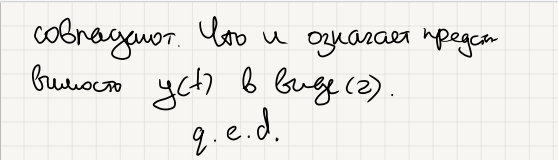 совпадают. Что и означает предста
вимость y(t) в виде (2).
q.e.d.